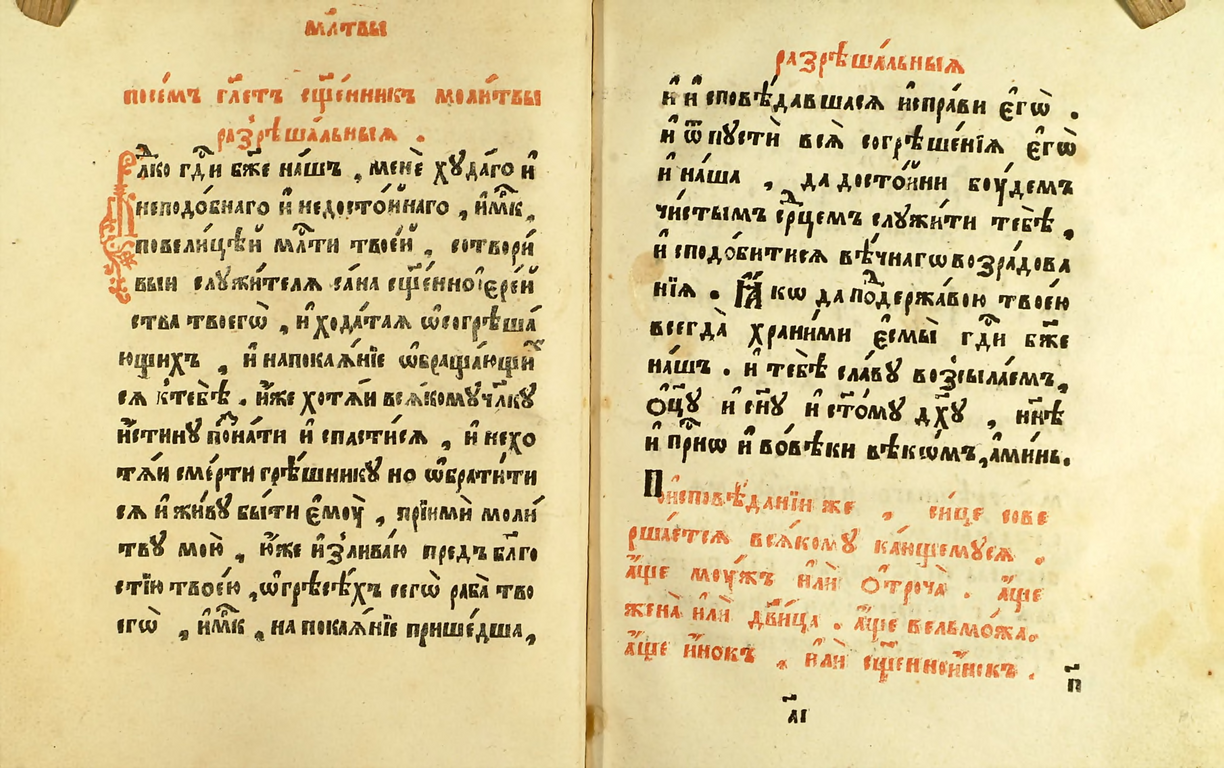 мл҃твы
посе́мъ гл҃етъ сщ҃е́нникъ моли́твы
разрѣша́льныя .
влⷣко гдⷭ҇и бж҃е на́шъ , менѐ худа́го и҆
неподо́бнаго и҆ недосто́йнаго , и҆мⷬ҇къ ,
повели́цѣй млⷭ҇ти твое́й , сотвори́
выи служи́теля са́на сщ҃е́нноїере́й
ства твоегѡ̀ , и҆ хода́тая ѡ҆ согрѣша́
ющихъ , и҆ на покая́нїе ѡ҆браща́ющиⷯ
ся к тебѣ̀ . и҆́же хотя́й вся́кому чл҃ку
и҆́стину позна́ти и҆ спасти́ся , и҆ не хо
тя́й сме́рти грѣ́шнику но ѡ҆брати́ти
ся и҆ жи́ву бы́ти є҆моу̀ , прїимѝ моли́
тву мою̀ , ю҆́же и҆злива́ю предъ бл҃го
стїю твое́ю , ѡ҆ грѣсѣ́хъ сегѡ̀ раба̀ тво
егѡ̀ , и҆мⷬ҇къ , на покая́нїе прише́дша ,
разрѣша́льныя
и҆ и҆сповѣ́давшася и҆спра́ви є҆гѡ̀ .
и҆ ѿпустѝ вся̀ согрѣше́нїя є҆гѡ̀
и҆ на́ша , да досто́йни боу́демъ
чи́стымъ срⷣцемъ служи́ти тебѣ̀ ,
и҆ сподо́битися вѣ́чнагѡ возра́дова
нїя . Ꙗ҆́кѡ да поⷣ держа́вою твое́ю
всегда̀ храни́ми є҆смы̀ гдⷭ҇и бж҃е
на́шъ . и҆ тебѣ̀ сла́ву возсыла́емъ ,
ѻ҆ц҃у и҆ сн҃у и҆ ст҃о́му дх҃у , нн҃ѣ
и҆ прⷭ҇нѡ и҆ во́вѣки вѣкѡ́мъ , а҆ми́нь .
По и҆сповѣ́данїи же , си́це сове
рша́ется вся́кому ка́ющемуся .
а҆́ще моу́жъ и҆лѝ ѻ҆троча̀ . а҆́ще
жена̀ и҆лѝ дв҃и́ца . а҆́ще вельмо́жа .
а҆́ще и҆́нокъ , и҆лѝ сщ҃е́нноинокъ .
п҃
а҃і